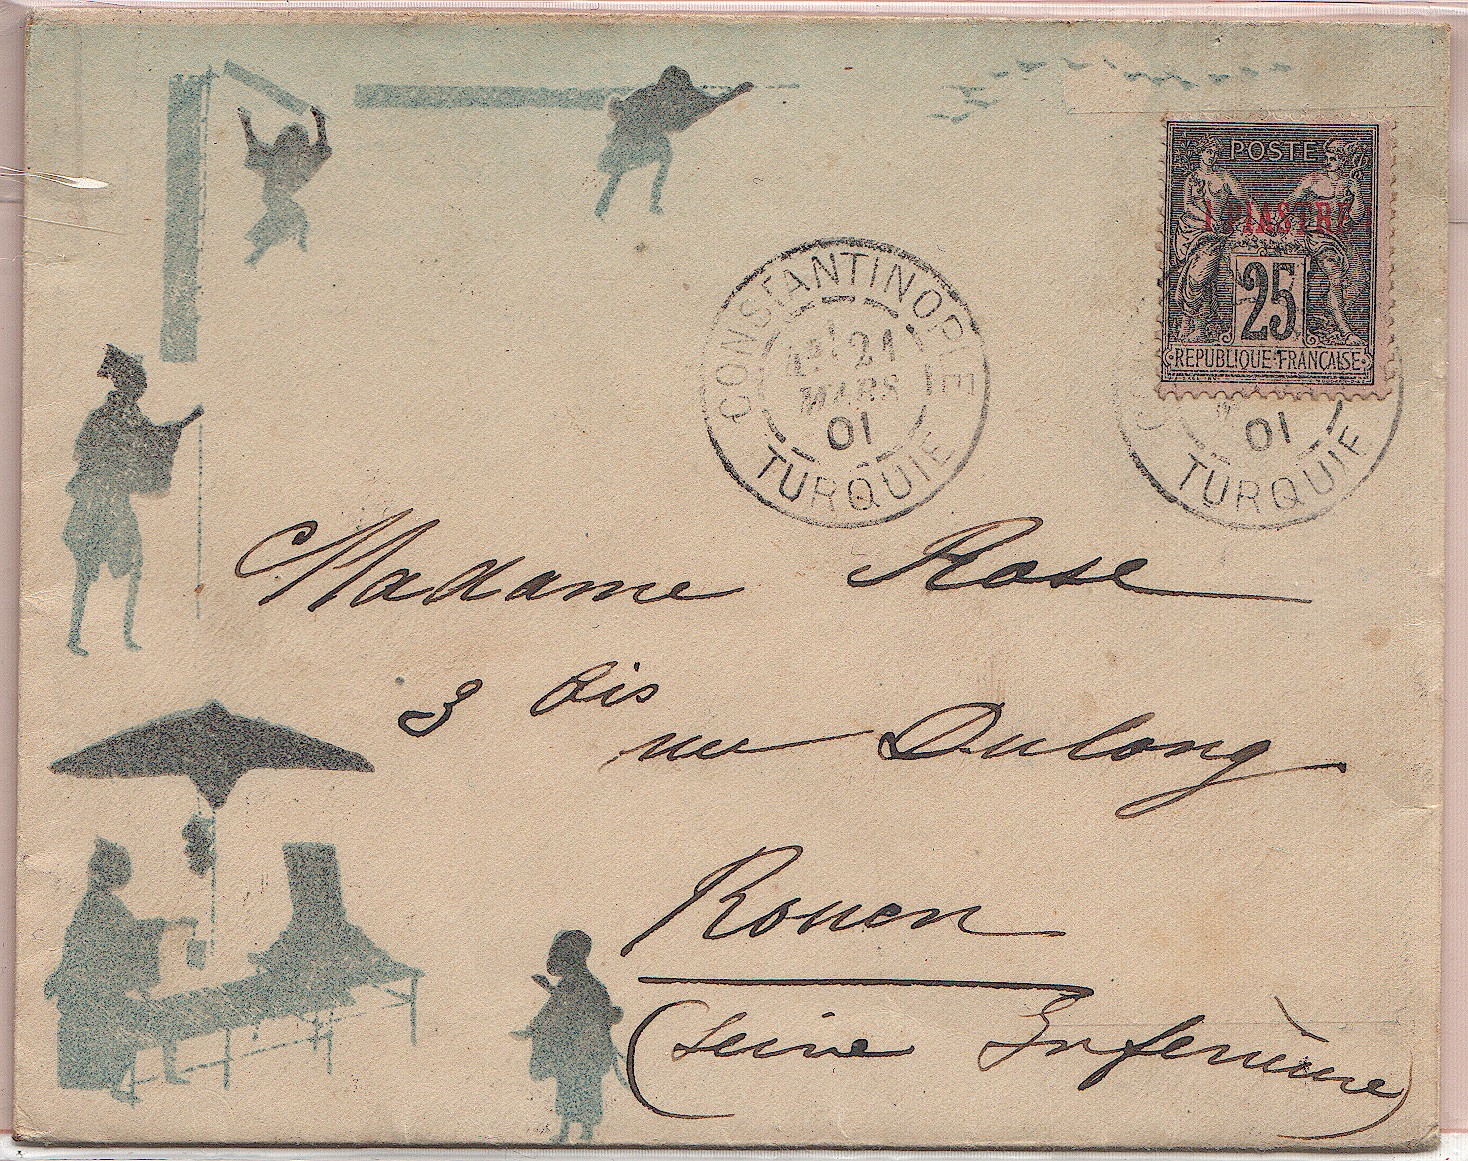 POSTE
1 PIASTRE
25
REPUBLIQUE FRANÇAISE
CONSTANTINOPLE
21
MARS
01
TURQUIE
01
TURQUIE
Madame Rose
3 bis
rue Dulong
Rouen
(Seine Inferieure)